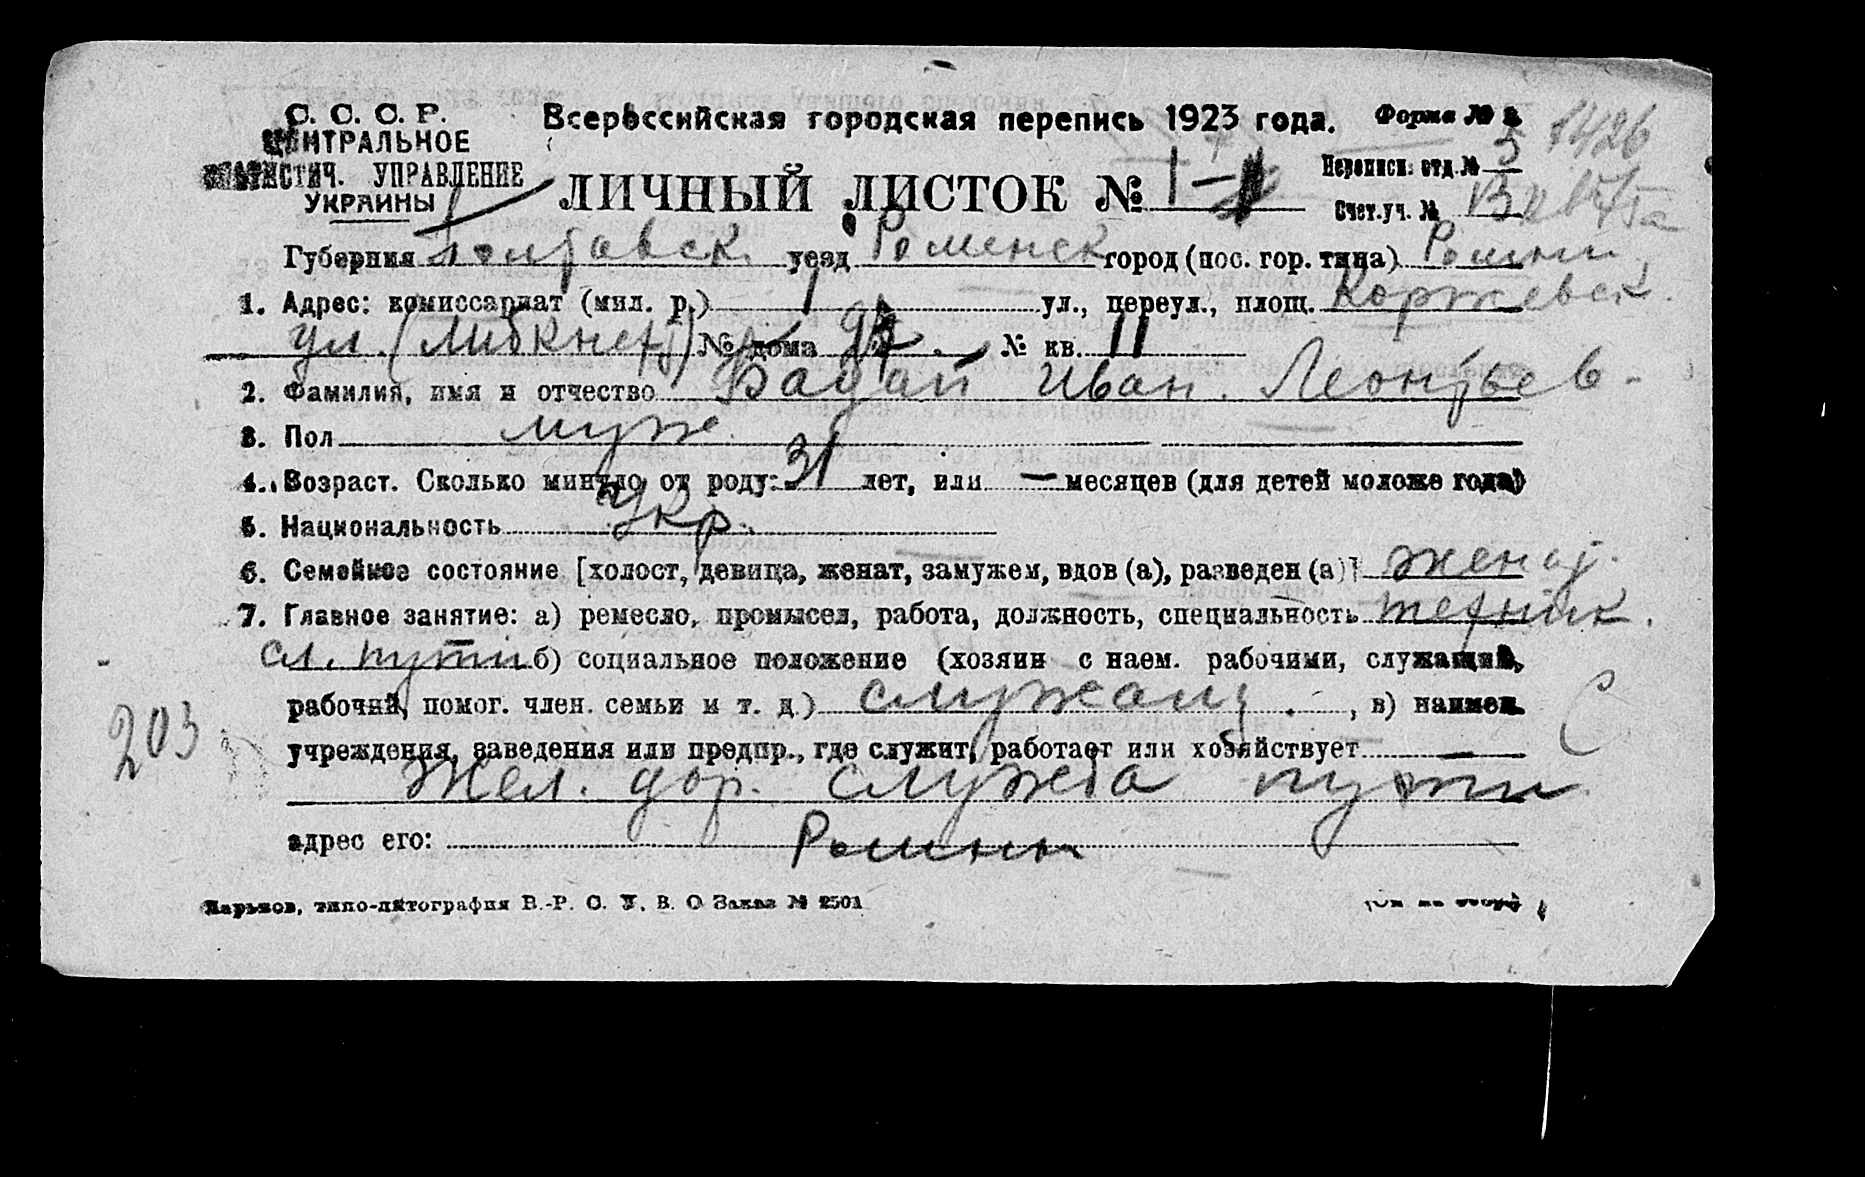 С. С. С. Р. Всероссийская городская перепись 1923 года. Форма №
ЦЕНТРАЛЬНОЕ
СТАТИСТИЧ. УПРАВЛЕНИЕ
УКРАИНЫ
1426
Переписн. отд. № 5
ЛИЧНЫЙ ЛИСТОК № 1
Счет. уч. №
Губерния Полтавск. уезд Роменск город (пос. гор. типа) Ромны
1. Адрес: комиссариат (мил. р.) 1 ул., переул., площ. Коржевск.
ул. (Либкнехт) № дома № кв. 11
2. Фамилия, имя и отчество Бадай Иван. Леонтьев-
3. Пол муж.
4. Возраст. Сколько минуло от роду: 31 лет, или — месяцев (для детей моложе года)
5. Национальность Укр.
6. Семейное состояние [холост, девица, женат, замужем, вдов (а), разведен (а)] женат.
7. Главное занятие: а) ремесло, промысел, работа, должность, специальность техник.
сл. пути б) социальное положение (хозяин с наем. рабочими, служащий,
рабочий, помог. член. семьи и т. д.) служащ. , в) наимен.
учреждения, заведения или предпр., где служит, работает или хозяйствует —
Жел. дор. служба пути
адрес его: Ромны
203
С
Харьков, типо-литография В.-Р. С. У. В. О. Заказ № 2501